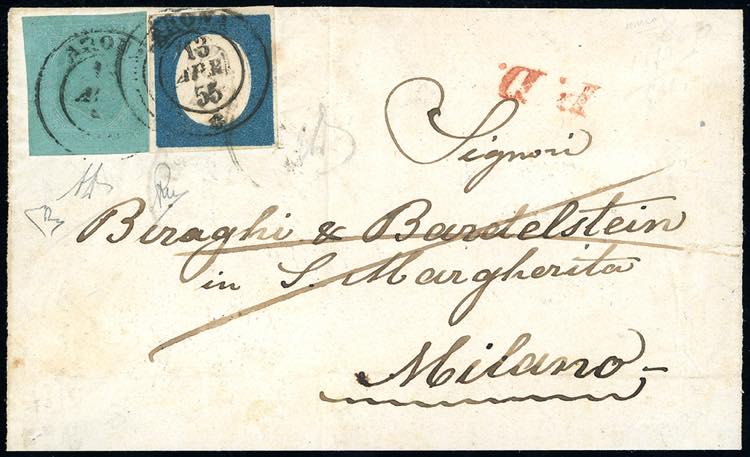 ARONA
13
APR
55
P.D.
Signori
Biraghi & Bardelstein
in S. Margherita
Milano